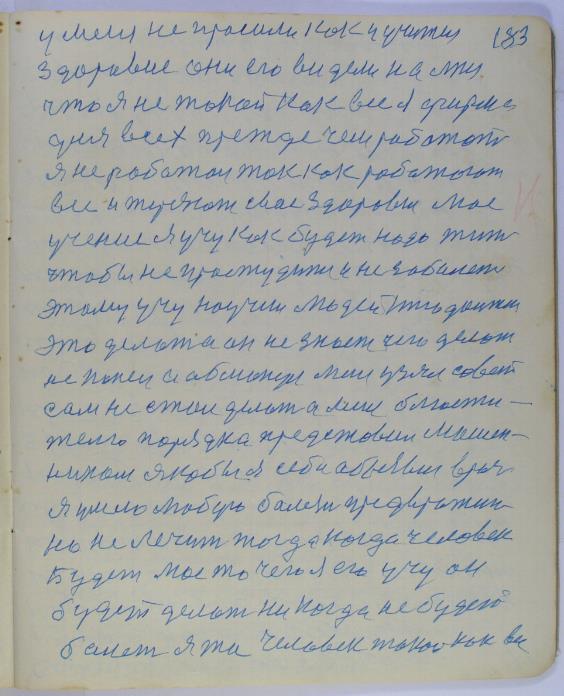 183
у меня не просили как и учител
здоровие они его видели на мну
что я не такой как все я
дня всех прежде чем работат
я не работал так как работают
все и теряют свае здоровия мое
учение я учу как будет надо жит
чтобы не простудит и не заболет
этому учу научил людей кто должен
это делат а он не знает чего делат
не понел а обманул мои узял совет
сам не стал делат а мене блюсти-
телю порядка предстовил мошен-
ником якобы я себя объявил врач
я умею любую болезн предвратит
но не лечит тогда когда человек
будет мое то чего я его учу он
будет делат никогда не будет
болет я та человек такой как вы